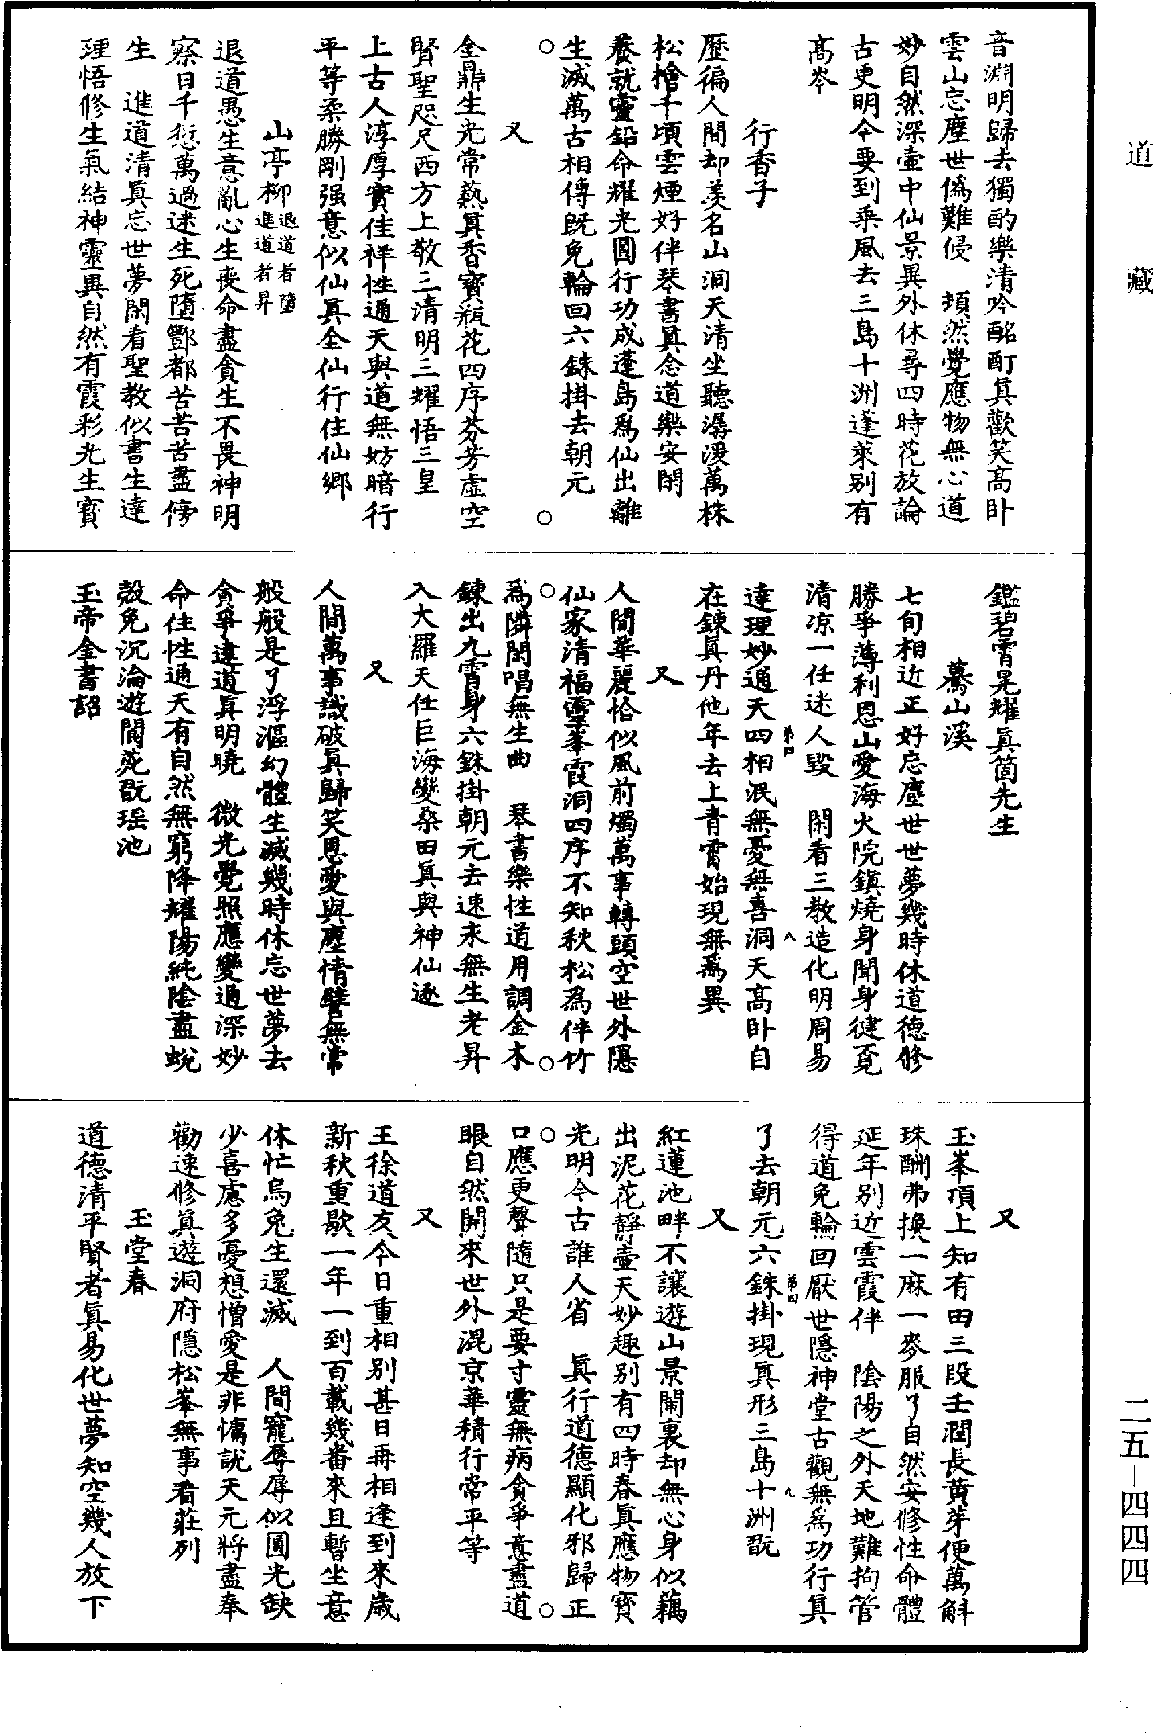 道藏
音淵明歸去獨酌樂清吟酩酊眞歡笑高卧
雲山忘塵世僞難侵　頓然覺應物無心道
妙自然深壺中仙景異外休尋四時花放論
古更明今要到乘風去三島十洲蓬萊别有
高岑
行香子
歷徧人間却羡名山洞天清坐聽潺湲萬株
松檜千頃雲煙好伴琴書眞念道樂安閑
養就靈鉛命耀光圓行功成蓬島爲仙出離
生滅萬古相傳旣免輪回六銖掛去朝元
又
金鼎生光常爇眞香寶瓶花四序芬芳虛空
賢聖咫尺西方上敬三清明三耀悟三皇
上古人淳厚實佳祥性通天與道無妨暗行
平等柔勝剛强意似仙眞全仙行住仙鄉
山亭柳退道者墮進道者昇
退道愚生意亂心生喪命盡貪生不畏神明
察日千愆萬過迷生死墮酆都苦苦苦盡傍
生　進道清眞忘世夢閑看聖教似書生達
理悟修生氣結神靈異自然有霞彩光生寳
鑑碧霄晃耀眞箇先生
驀山溪
七旬相近正好忘塵世世夢幾時休道德修
勝爭薄利恩山愛海火院鎮燒身閑身健覔
清凉一任迷人毀　閑看三教造化明周易
達理妙通天四相泯無憂無喜洞天高卧自
在鍊眞丹他年去上青霄始現無爲異
又
人間華麗恰似風前燭萬事轉頭空世外隱
仙家清福靈峯霞洞四序不知秋松爲伴竹
爲隣閑唱無生曲　琴書樂性道用調金木
鍊出九霄身六銖掛朝元去速來無生老昇
入大羅天任巨海變桑田眞與神仙逐
又
人間萬事識破眞歸笑恩愛與塵情譬無常
般般是了浮漚幻體生滅幾時休忘世夢去
貪爭達道眞明曉　微光覺照應變通深妙
命住性通天有自然無窮降耀陽純陰盡蛻
殼免沉淪遊閬苑翫瑤池
玉帝金書詔
又
玉峯頂上知有田三段壬潤長黄芽便萬斛
珠酬弗換一麻一麥服了自然安修性命體
延年别近雲霞伴　陰陽之外天地難拘管
得道免輪回厭世隱神堂古觀無爲功行眞
了去朝元六銖掛現眞形三島十洲翫
又
紅蓮池畔不讓遊山景閙裏却無心身似藕
出泥花靜壺天妙趣别有四時春眞應物寳
光明今古誰人省　眞行道德顯化邪歸正
口應更聲隨只是要寸靈無病貪爭意盡道
眼自然開來世外混京華積行常平等
又
王徐道友今日重相别甚日再相逢到來歲
新秋重歇一年一到百載幾番來且暫坐意
休忙烏兔生還滅　人間寵辱辱似圓光缺
少喜慮多憂想憎愛是非慵説天元將盡奉
勸速修眞遊洞府隱松峯無事看莊列
玉堂春
道德清平賢者眞易化世夢知空幾人放下
第四
八
第四
九
二五—四四四